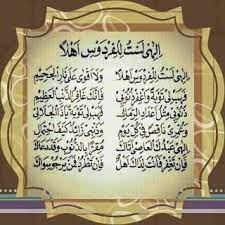 الهي لست للفردوس اهلا
الهي لست للفردوس اهلا ولا اقوى على نار الجحيم
فهب لي توبة واغفر ذنوبي فانك غافر الذنب العظيم
ذنوبي مثل اعداد الرمال فهب لي توبة ياذا الجلال
وعمري ناقص في كل يوم وذنبي زائد كيف احتمال
الهي عبدك العاصي اتاك مقرا بالذنوب وقد دعاك
فان تغفر فانت لذاك اهل فان تطرد فمن يرجو سواك